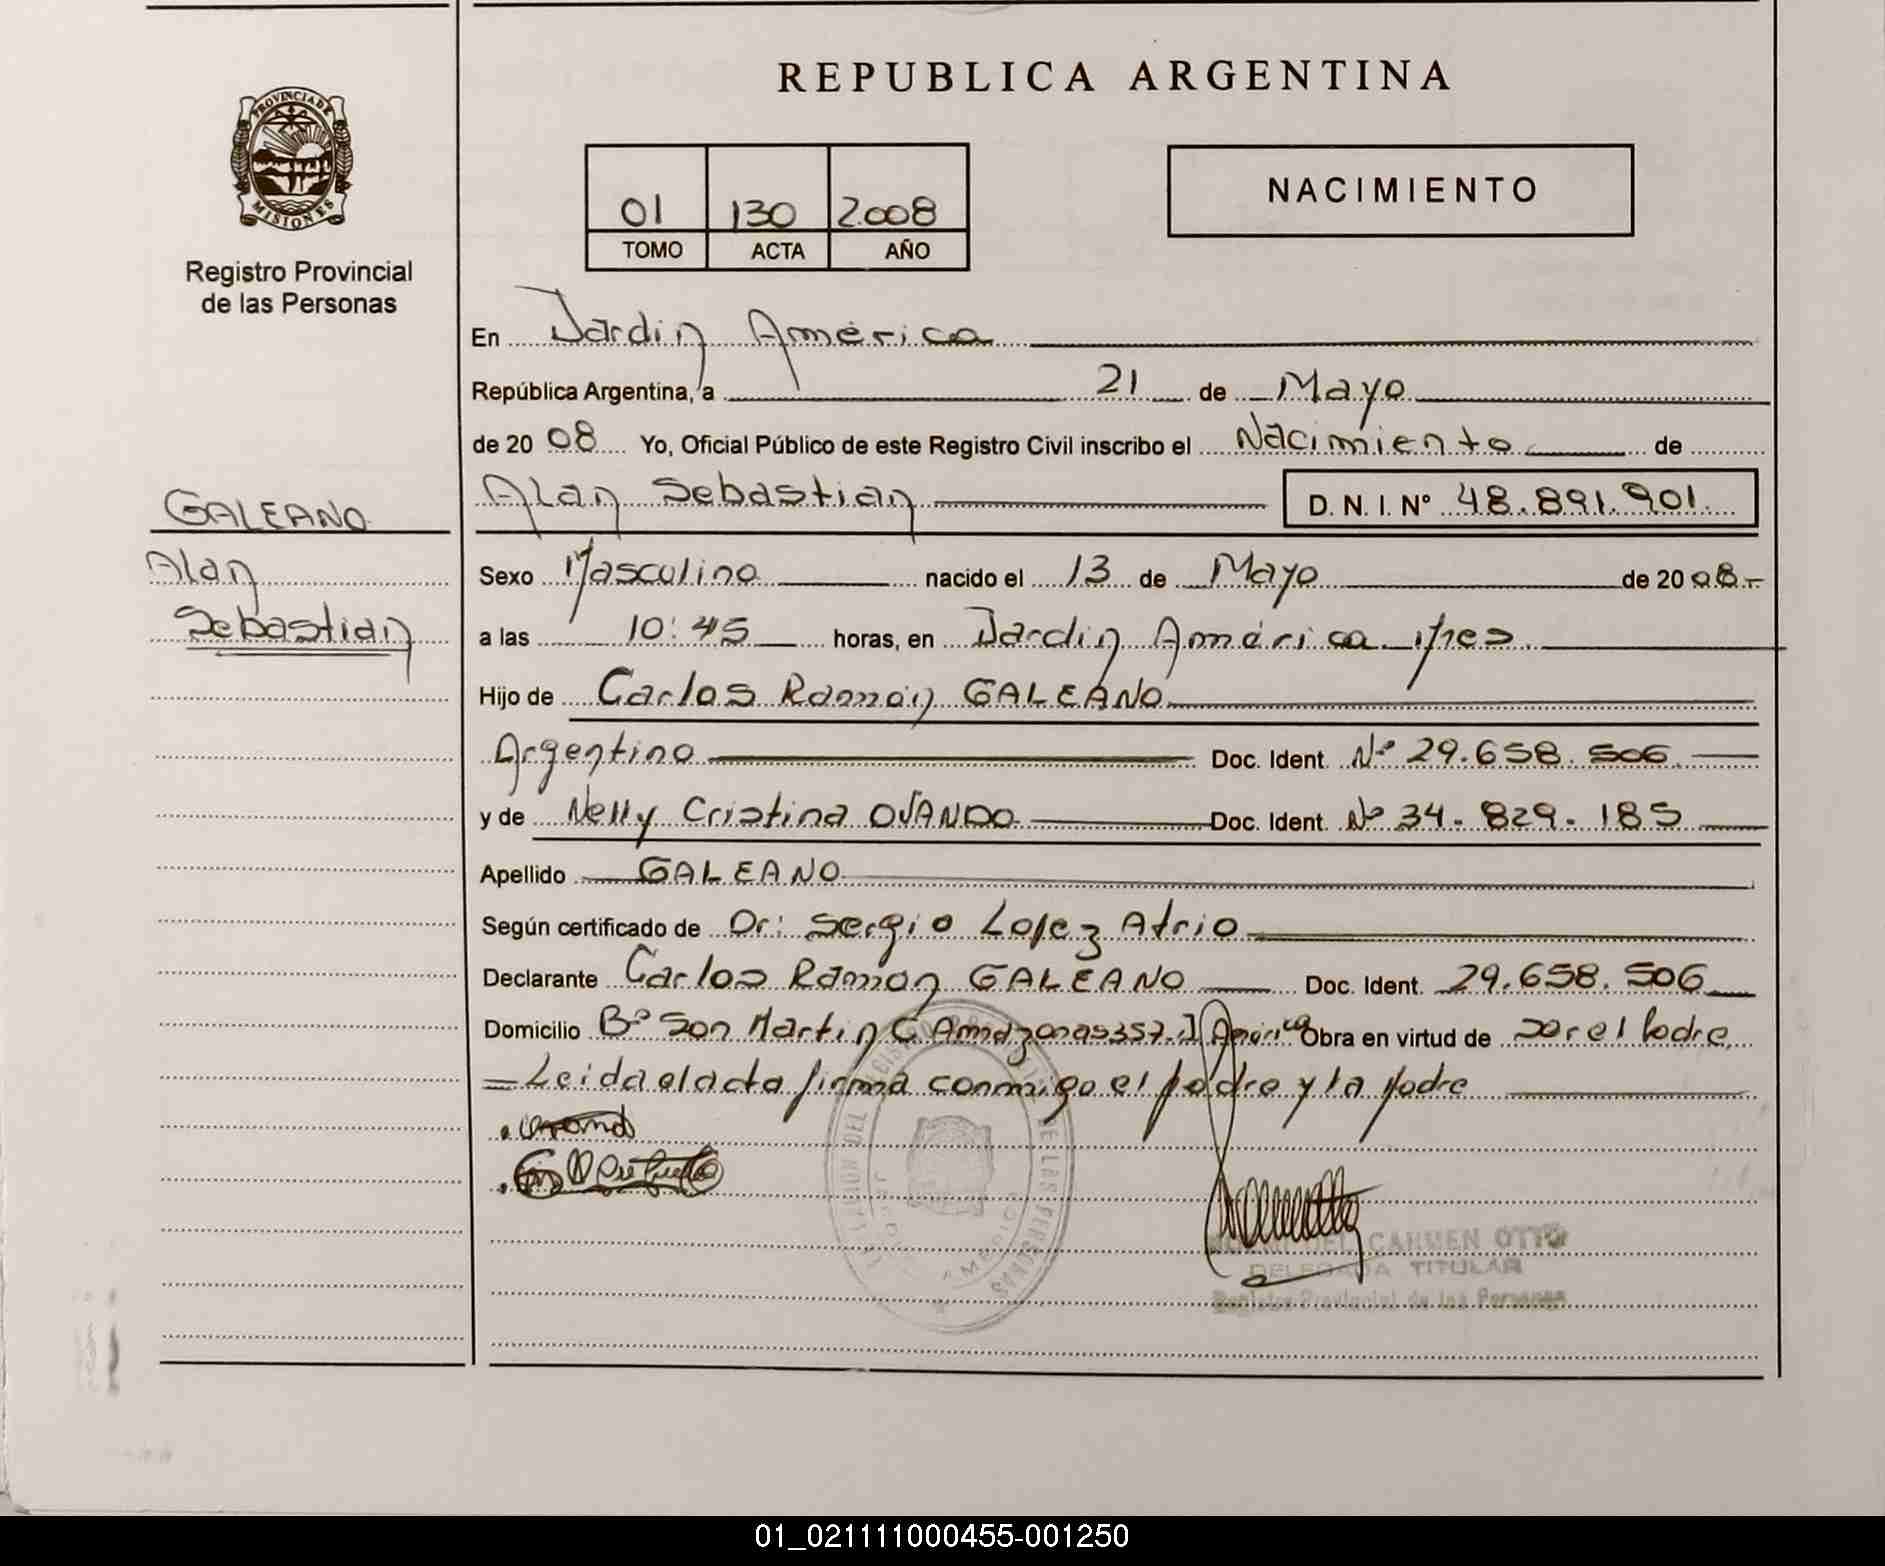 PROVINCIA DE
MISIONES
Registro Provincial
de las Personas
GALEANO
Alan
Sebastian
REPUBLICA ARGENTINA
01 130 2.008
TOMO ACTA AÑO
NACIMIENTO
En Jardin América
República Argentina, a 21 de Mayo
de 20 08 Yo, Oficial Público de este Registro Civil inscribo el Nacimiento de
Alan Sebastian D. N. I. N° 48.891.901.
Sexo Masculino nacido el 13 de Mayo de 20 08.-
a las 10:45 horas, en Jardin América
Hijo de Carlos Ramón GALEANO
Argentino Doc. Ident. Nº 29.658.506
y de Nelly Cristina OVANDO Doc. Ident. Nº 34.829.185
Apellido GALEANO
Según certificado de Dr: Sergio Lopez Atrio
Declarante Carlos Ramon GALEANO Doc. Ident. 29.658.506
Domicilio Bº San Martin C. Amazonas 357. J. América Obra en virtud de ser el Padre
Leida el acta firma conmigo el padre y la Madre
DEL CARMEN OTTO
DELEGADA TITULAR
Registro Provincial de las Personas
01_021111000455-001250